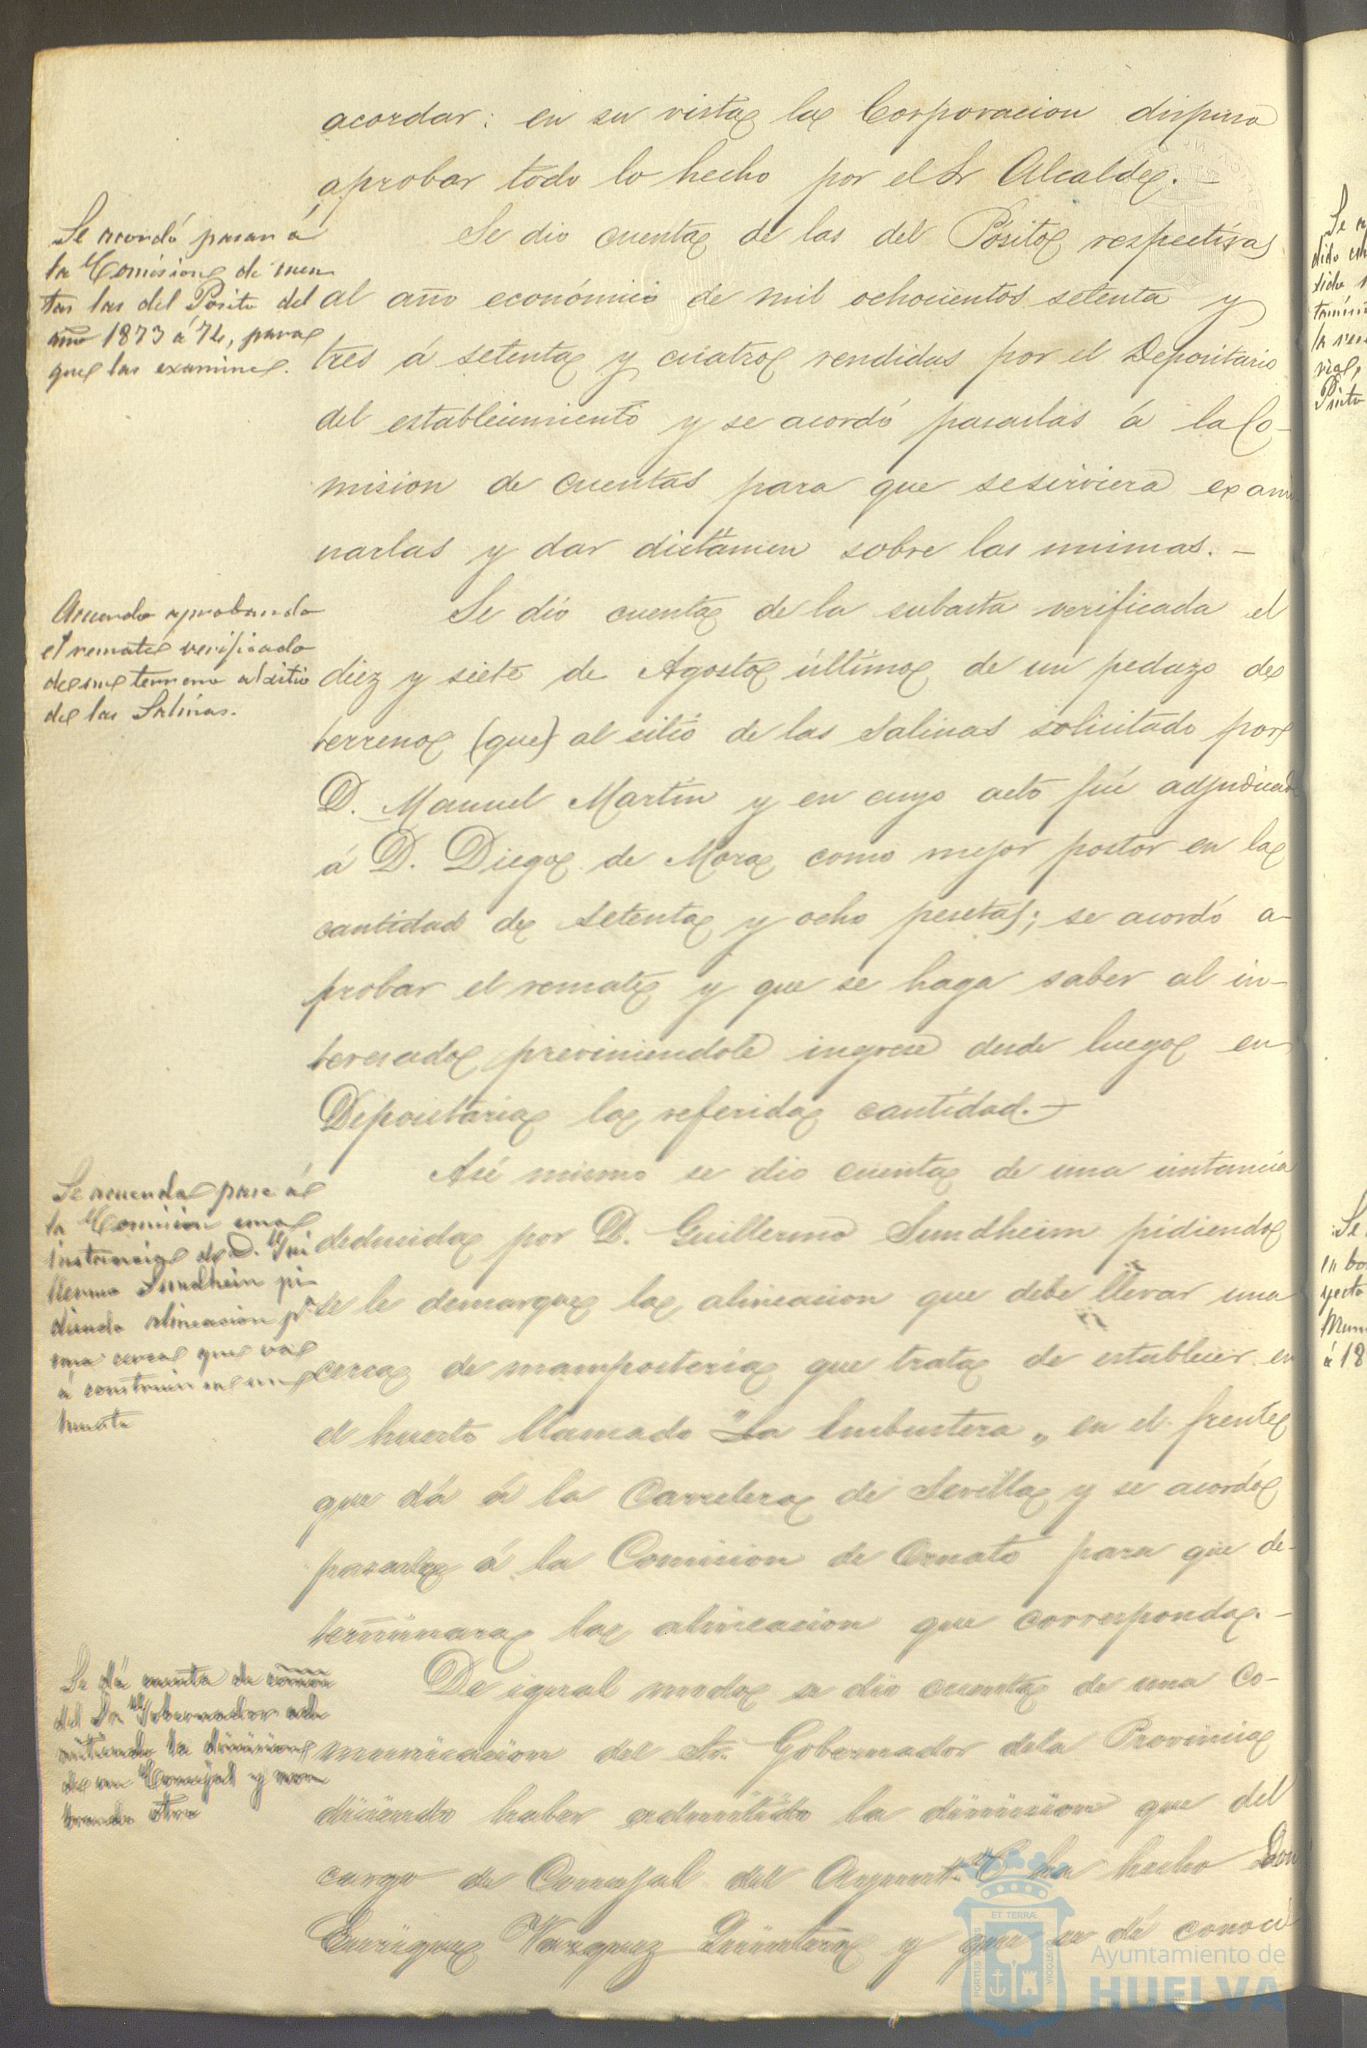 acordar: en su vista la Corporacion dispuso
aprobar todo lo hecho por el Sr Alcalde. —
Se acordó pasar á
la Comision de cuen
tas las del Posito del
año 1873 á 74, para
que las examine.
Se dio cuenta de las del Pósito respectivas
al año económico de mil ochocientos setenta y
tres á setenta y cuatro rendidas por el Depositario
del establecimiento y se acordó pasarlas á la Co-
mision de cuentas para que se sirviera exami
narlas y dar dictámen sobre las mismas. —
Acuerdo aprobando
el remate verificado
de un terreno al sitio
de las Salinas.
Se dio cuenta de la subasta verificada el
diez y siete de Agosto último de un pedazo de
terreno (que) al sitio de las Salinas solicitado por
D. Manuel Martin y en cuyo acto fué adjudicado
á D. Diego de Mora como mejor postor en la
cantidad de setenta y ocho pesetas; se acordó a-
probar el remate y que se haga saber al in-
teresado previniendole ingrese desde luego en
Depositaria la referida cantidad. —
Se acuerda pase á
la Comision una
instancia de D. Gui
llermo Sundhein pi-
diendo alineacion pª
una cerca que va
á construir en un
huerto
Asi mismo se dio cuenta de una instancia
deducida por D. Guillermo Sundheim pidiendo
se le demarque la alineacion que debe llevar una
cerca de mamposteria que trata de establecer en
el huerto llamado "La Embustera" en el frente
que dá á la Carretera de Sevilla y se acordó
pasarla á la Comision de Ornato para que de-
terminara la alineacion que corresponda. —
Se dá cuenta de comon
del Sr Gobernador ad
mitiendo la dimision
de un Concejal y nom
brando otro
De igual modo se dio cuenta de una co-
municacion del Sr. Gobernador de la Provincia
diciendo haber admitido la dimision que del
cargo de Concejal del Ayunt.º ha hecho Don
Enrique Vazquez Quintana y que se dé conoci
PORTUS MARIS
ET TERRÆ
CUSTODIA
Ayuntamiento de
HUELVA